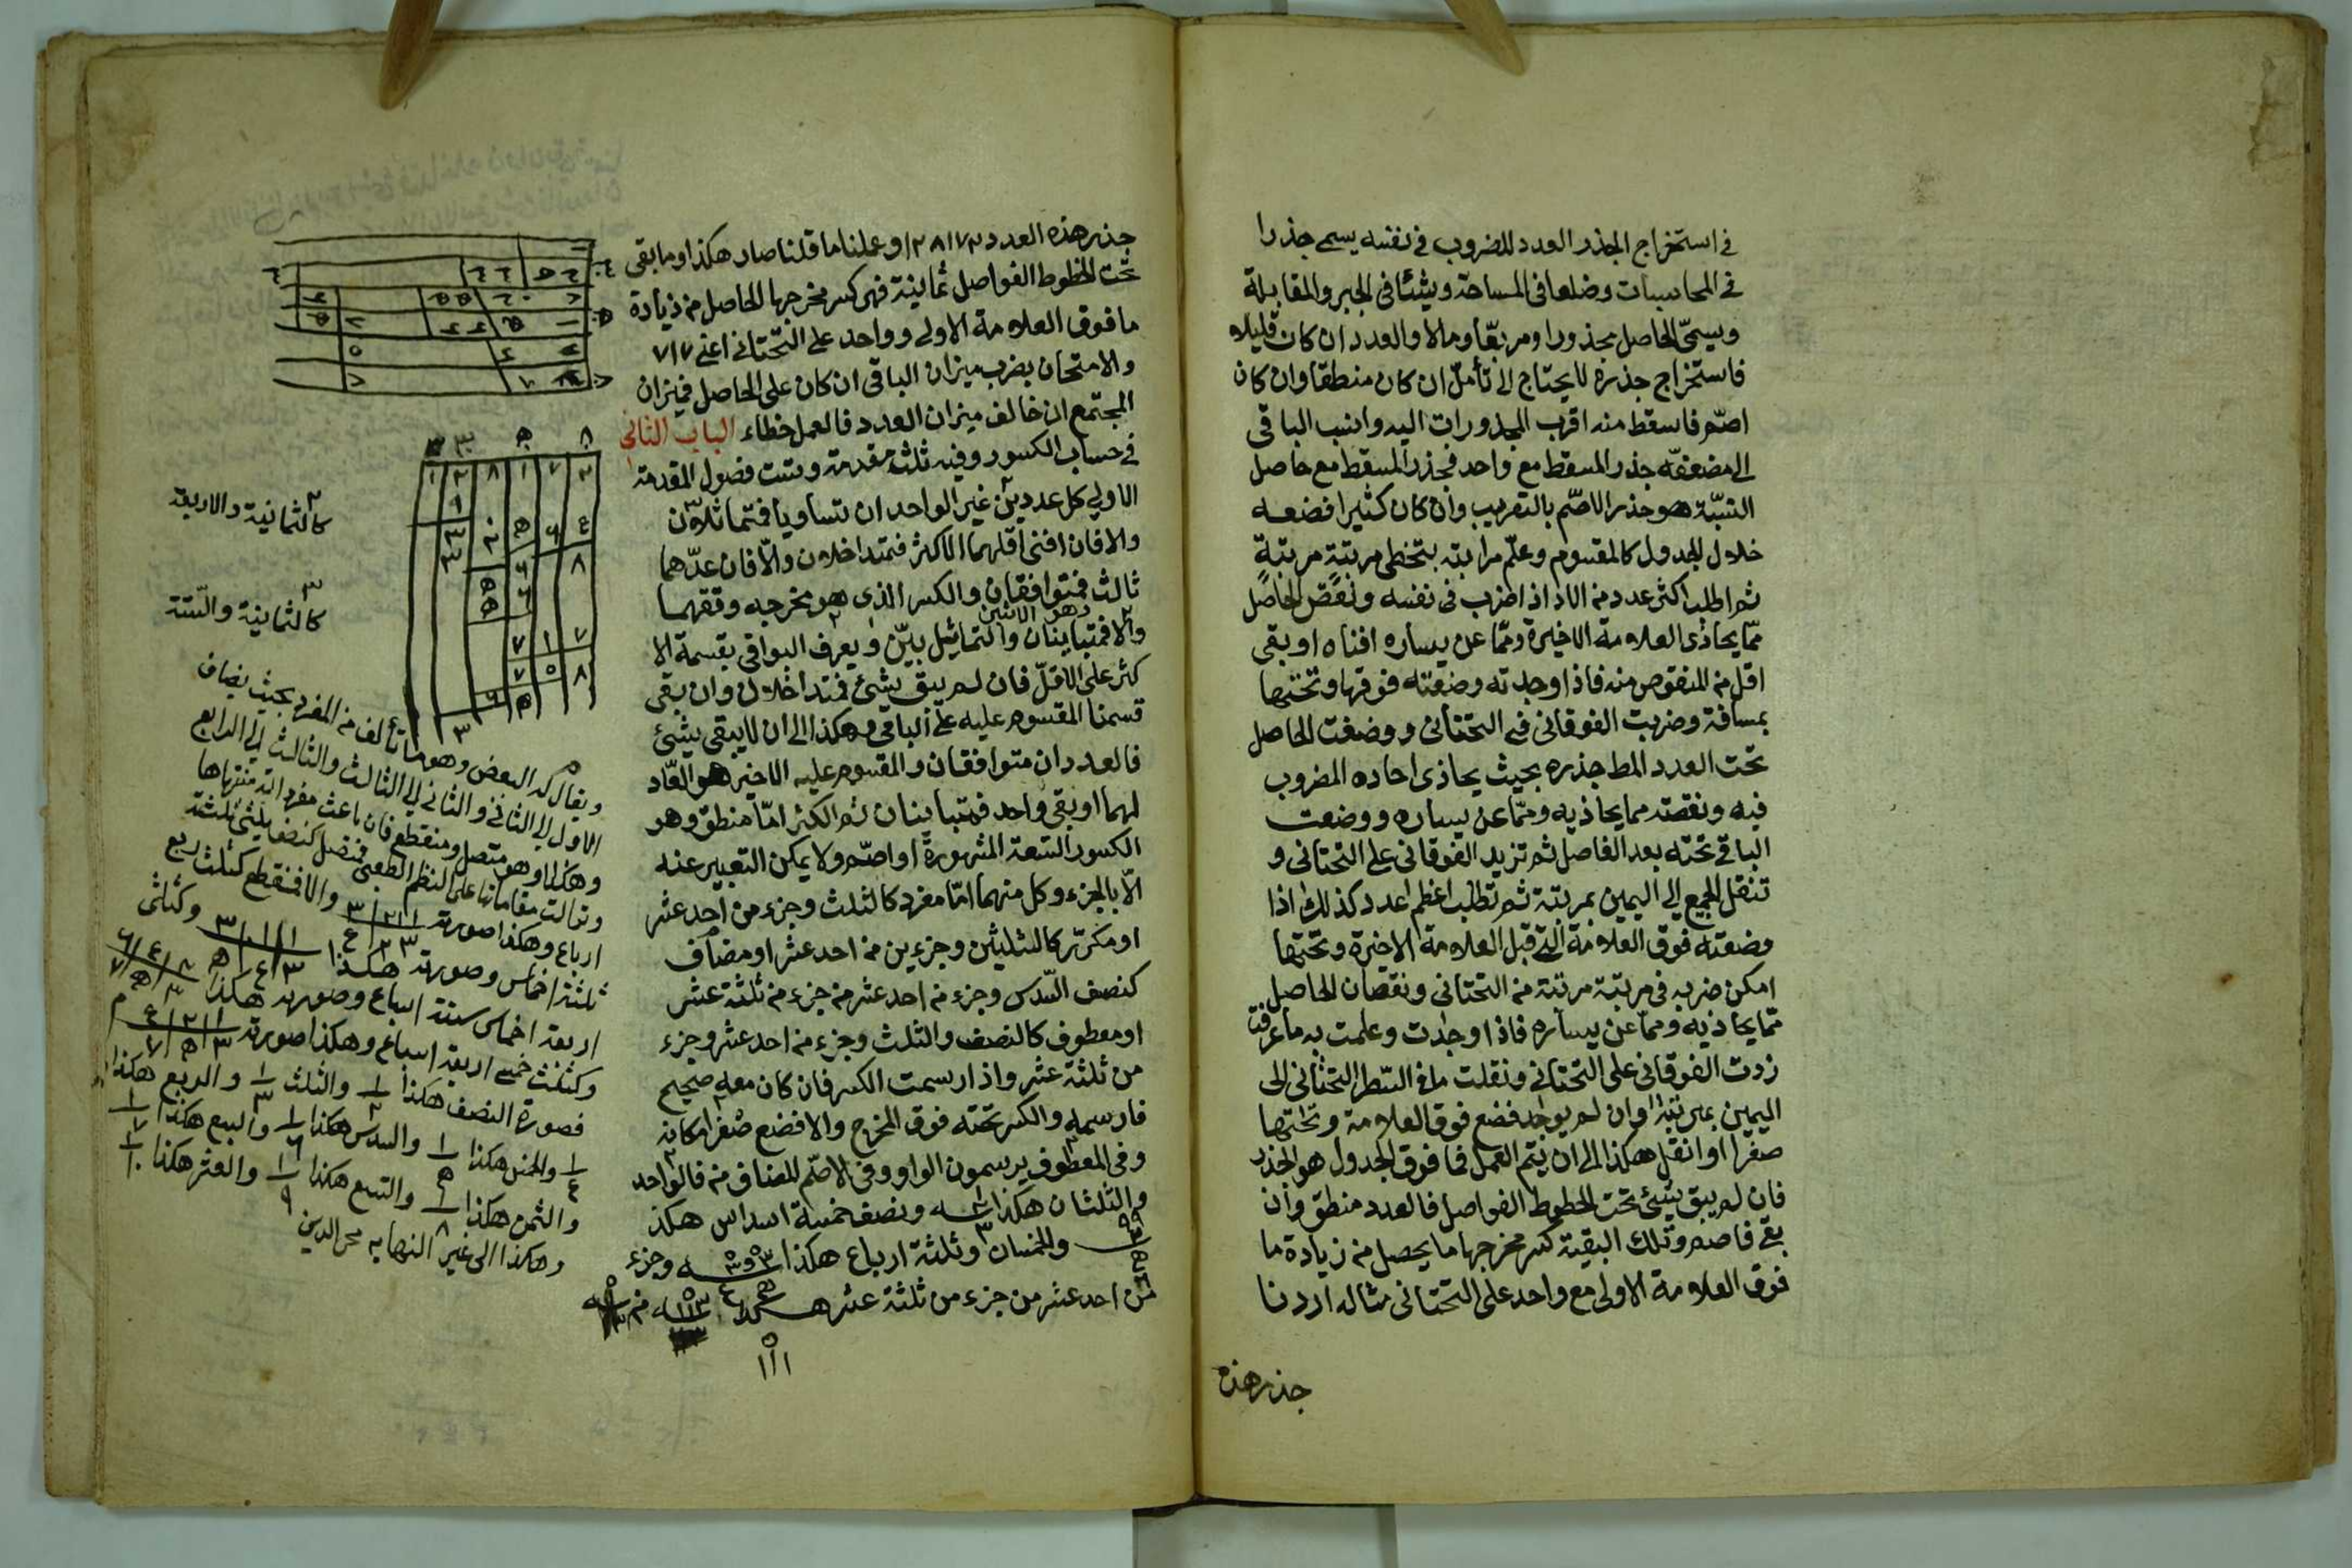 في استخراج الجذر العدد المضروب في نفسه يسمى جذرا
في المحاسبات وضلعا في المساحة وشيئا في الجبر والمقابلة
ويسمّى الحاصل مجذورا ومربّعا ومالا والعدد ان كان قليلا
فاستخراج جذره لا يحتاج الى تأمل ان كان منطقا وان كان
اصمّ فاسقط منه اقرب المجذورات اليه وانسب الباقي
الى مضعف جذر المسقط مع واحد فجذر المسقط مع حاصل
النسبة هو جذر الاصمّ بالتقريب وان كان كثيرا فضعه
خلال الجدول كالمقسوم وعلّم مراتبه بتخطى مرتبة مرتبةٍ
ثم اطلب اكثر عدد من الاحاد اذا ضرب في نفسه ونقص الحاصل
ممّا يحاذى العلامة الاخيرة وممّا عن يساره افناه او بقى
اقل من المنقوص منه فاذا وجدته وضعته فوقها وتحتها
بمسافة وضربت الفوقاني في التحتاني ووضعت الحاصل
تحت العدد المط جذره بحيث يحاذى احاده المضروب
فيه ونقصته مما يحاذيه وممّا عن يساره ووضعت
الباقي تحته بعد الفاصل ثم تزيد الفوقاني على التحتاني و
تنقل المجمع الى اليمين بمرتبة ثم تطلب اعظم عدد كذلك اذا
وضعته فوق العلامة التي قبل العلامة الاخيرة وتحتها
امكن ضربه في مرتبة مرتبة من التحتاني ونقصان الحاصل
ممّا يحاذيه وممّا عن يساره فاذا وجدت وعلمت به ما عرفت
زدت الفوقاني على التحتاني ونقلت ما في السّطر التحتاني الى
اليمين بمرتبة وان لم يوجد فضع فوق العلامة وتحتها
صفرا وانقل هكذا الى ان يتم العمل فما فوق الجدول هو الجذر
فان لم يبق شيئ تحت الخطوط الفواصل فالعدد منطق وان
بقى فاصم وتلك البقية كسر مخرجها ما يحصل من زيادة ما
فوق العلامة الاولى مع واحد على التحتاني مثاله اردنا
جذر هذه
جذر هذه العدد ١٢٨١٧٣ وعملنا ما قلنا صار هكذا وما بقى
تحت الخطوط الفواصل ثمانية فهى كسر مخرجها الحاصل من زيادة
ما فوق العلامة الاولى وواحد على التحتاني اعنى ٧١٧
والامتحان بضرب ميزان الباقي ان كان على الحاصل فميزان
المجتمع ان خالف ميزان العدد فالعمل خطاء الباب الثاني
في حساب الكسور وفيه ثلث مقدمة وستت فصول المقدمة
الاولى كل عددين غير الواحد ان تساويا فتماثلان
والا فان افنى اقلهما الاكثر فمتداخلان والّا فان عدّهما
ثالث فمتوافقان والكسر الذى هو مخرجه وفقهما
وهو الاثنين
والا فمتباينان والتماثل بيّن ويعرف البواقي بقسمة الا
كثر على الاقلّ فان لم يبق شيئ فمتداخلان وان بقى
قسمنا المقسوم عليه على الباقي وهكذا الى ان لا يبقى شيئ
فالعددان متوافقان والمقسوم عليه الاخير هو العّاد
لهما او بقى واحد فمتباينان ثم الكسر امّا منطق وهو
الكسور التسعة المشهورة او اصّم ولا يمكن التعبير عنه
الّا بالجزء وكل منهما امّا مفرد كالثلث وجزء من احد عشر
او مكرّر كالثلثين وجزءين من احد عشر او مضاف
كنصف السّدس وجزء من احد عشر من جزء من ثلثة عشر
او معطوف كالنصف والثلث وجزء من احد عشر وجزء
من ثلثة عشر واذا رسمت الكسر فان كان معه صحيح
فارسمه والكسر تحته فوق المخرج والا فضع صفرا مكانه
وفي المعطوف يرسمون الواو وفي الاصّم المضاف من فالواحد
والثلثان هكذا ونصف خمسة اسداس هكذ
والخمسان وثلثة ارباع هكذا وجزء
من احد عشر من جزء من ثلثة عشر هكذا
كالثمانية والاربعة
كالثمانية والستة
ويقال له البعض وهو ما تألف من المفرد بحيث يضاف
الاول الى الثاني والثاني الى الثالث والثالث الى الرابع
وهكذا وهو متصل ومنقطع فان
وتوالت مقاماتها على النظم الطبعى فمتصل كنصف ثلثى ثلثة
ارباع وهكذا صورته والا فمنقطع كثلث ربع
ثلثة اخماس وصورته هكذا وكثلثى
اربعة اخماس ستة اسباع وصورته هكذا
وكثلث خمسى اربعة اسباع وهكذا صورته
فصورة النصف هكذا ١/٢ والثلث ١/٣ والربع هكذا
١/٤ والخمس هكذا ١/٥ والسدس هكذا ١/٦ والسبع هكذا ١/٧
والثمن هكذا ١/٨ والتسع هكذا ١/٩ والعشر هكذا ١/١٠
وهكذا الى غير النهايه